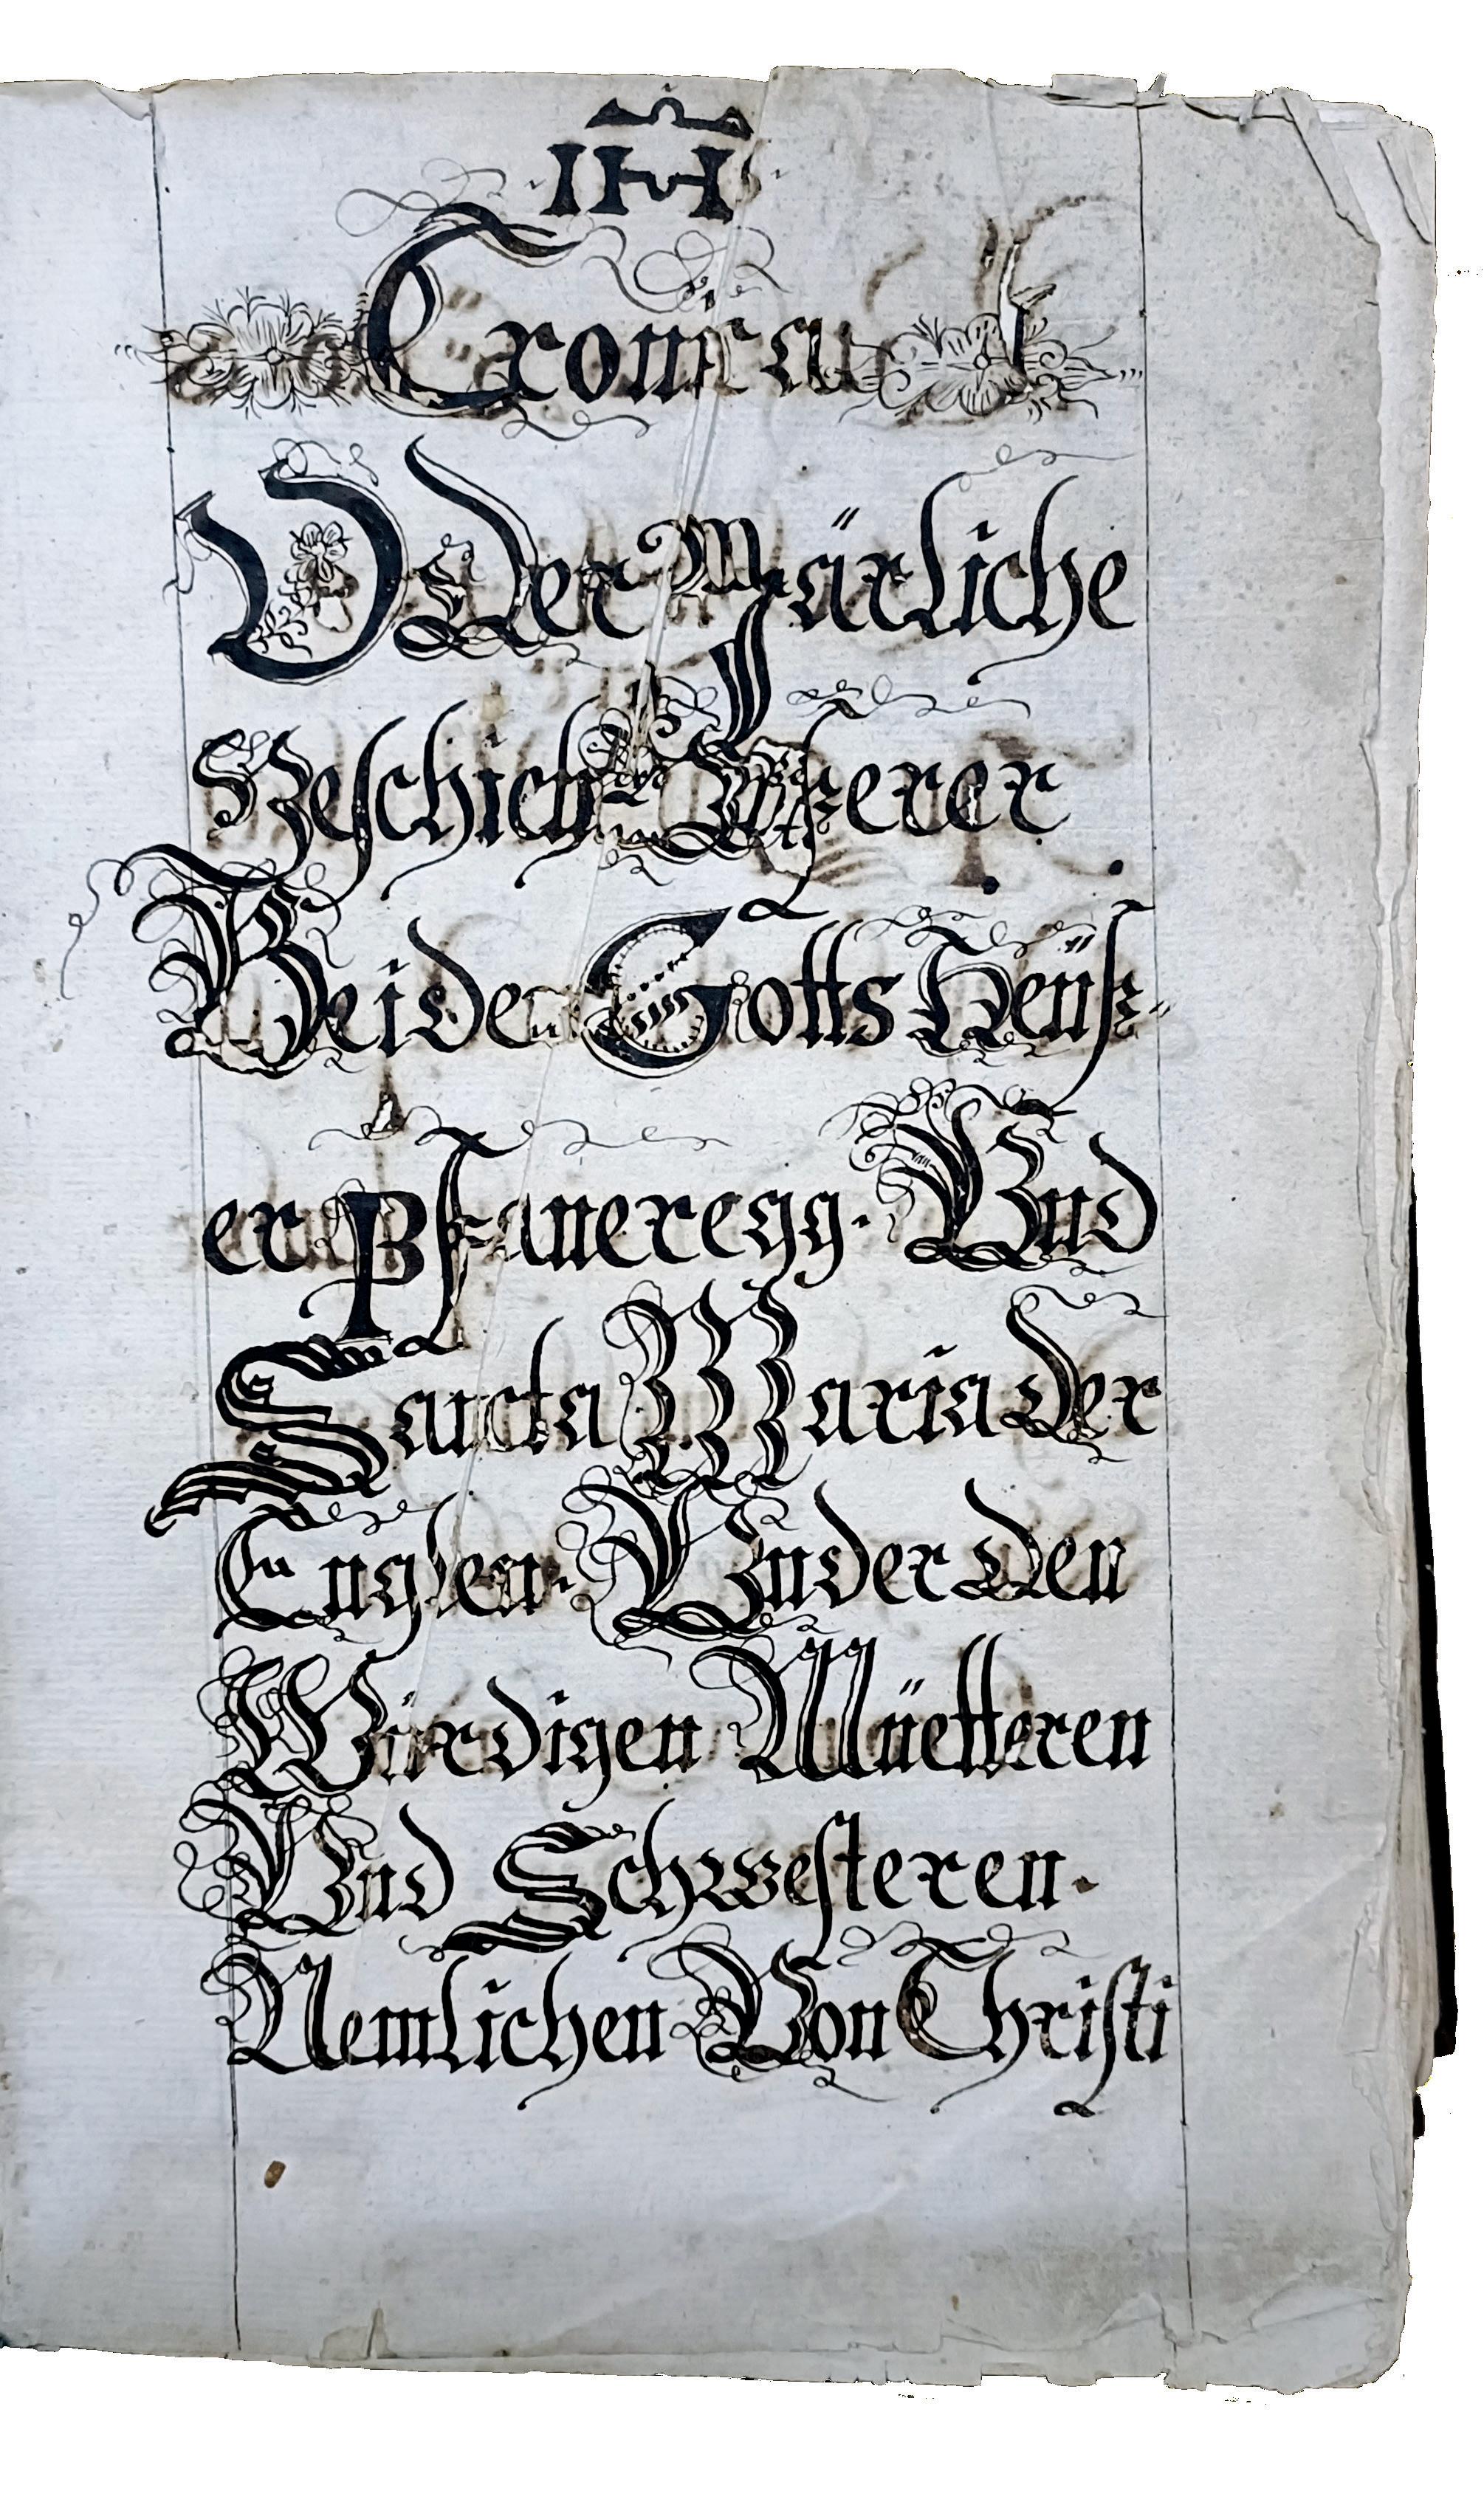 IHS
Cronica
Oder Järliche
Geschicht Unserer
Beiden Gotts Heüs-
er Pfaneregg. Und
Sancta Maria der
Englen. Under den
Würdigen Müetteren
Und Schwesteren.
Nemlichen Von Christi